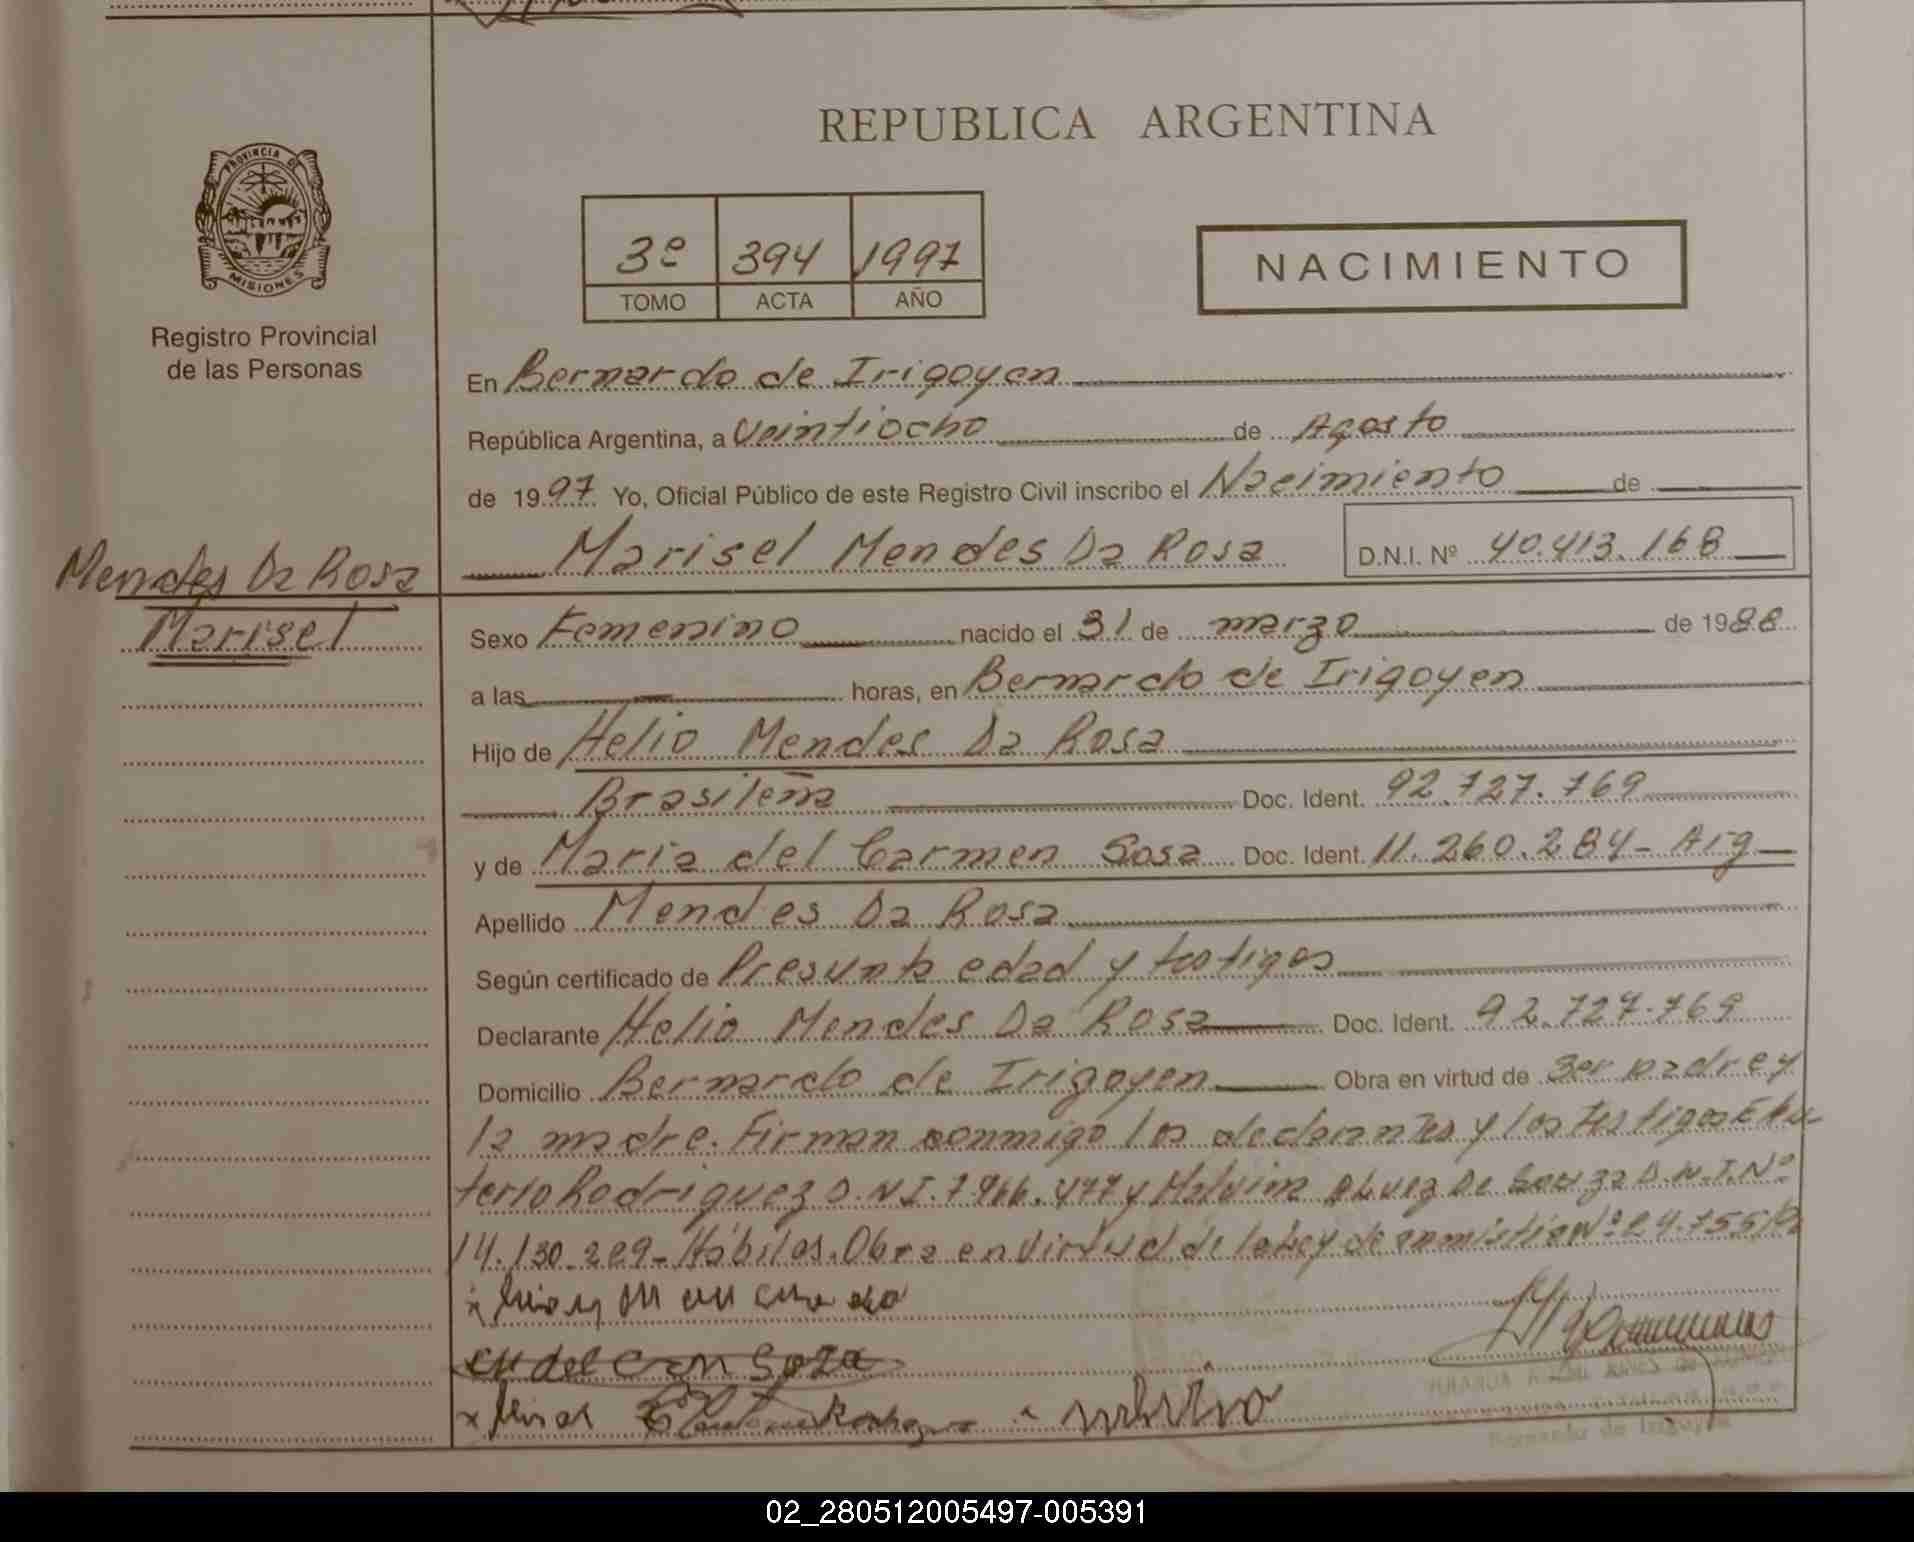 REPUBLICA ARGENTINA
PROVINCIA DE
MISIONES
Registro Provincial
de las Personas
3º 394 1997
TOMO ACTA AÑO
NACIMIENTO
En Bernardo de Irigoyen
República Argentina, a Veintiocho de Agosto
de 1997 Yo, Oficial Público de este Registro Civil inscribo el Nacimiento de
Marisel Mendes Da Rosa D.N.I. Nº 40.413.168
Mendes Da Rosa
Marisel
Sexo Femenino nacido el 31 de marzo de 1988
a las horas, en Bernardo de Irigoyen
Hijo de Helio Mendes Da Rosa
Brasileña Doc. Ident. 92.727.769
y de Maria del Carmen Sosa Doc. Ident. 11.260.284- Arg
Apellido Mendes Da Rosa
Según certificado de Presunta edad y testigos
Declarante Helio Mendes Da Rosa Doc. Ident. 92.727.769
Domicilio Bernardo de Irigoyen Obra en virtud de Ser padre y
la madre. Firman conmigo los declarantes y los testigos
Rodriguez D.N.I. 7.966.477 y Malvina De Souza D.N.I. Nº
14.130.289- Hábiles. Obra en virtud de la Ley de amnistia Nº 24.755
del Sosa
Bernardo de Irigoyen
02_280512005497-005391